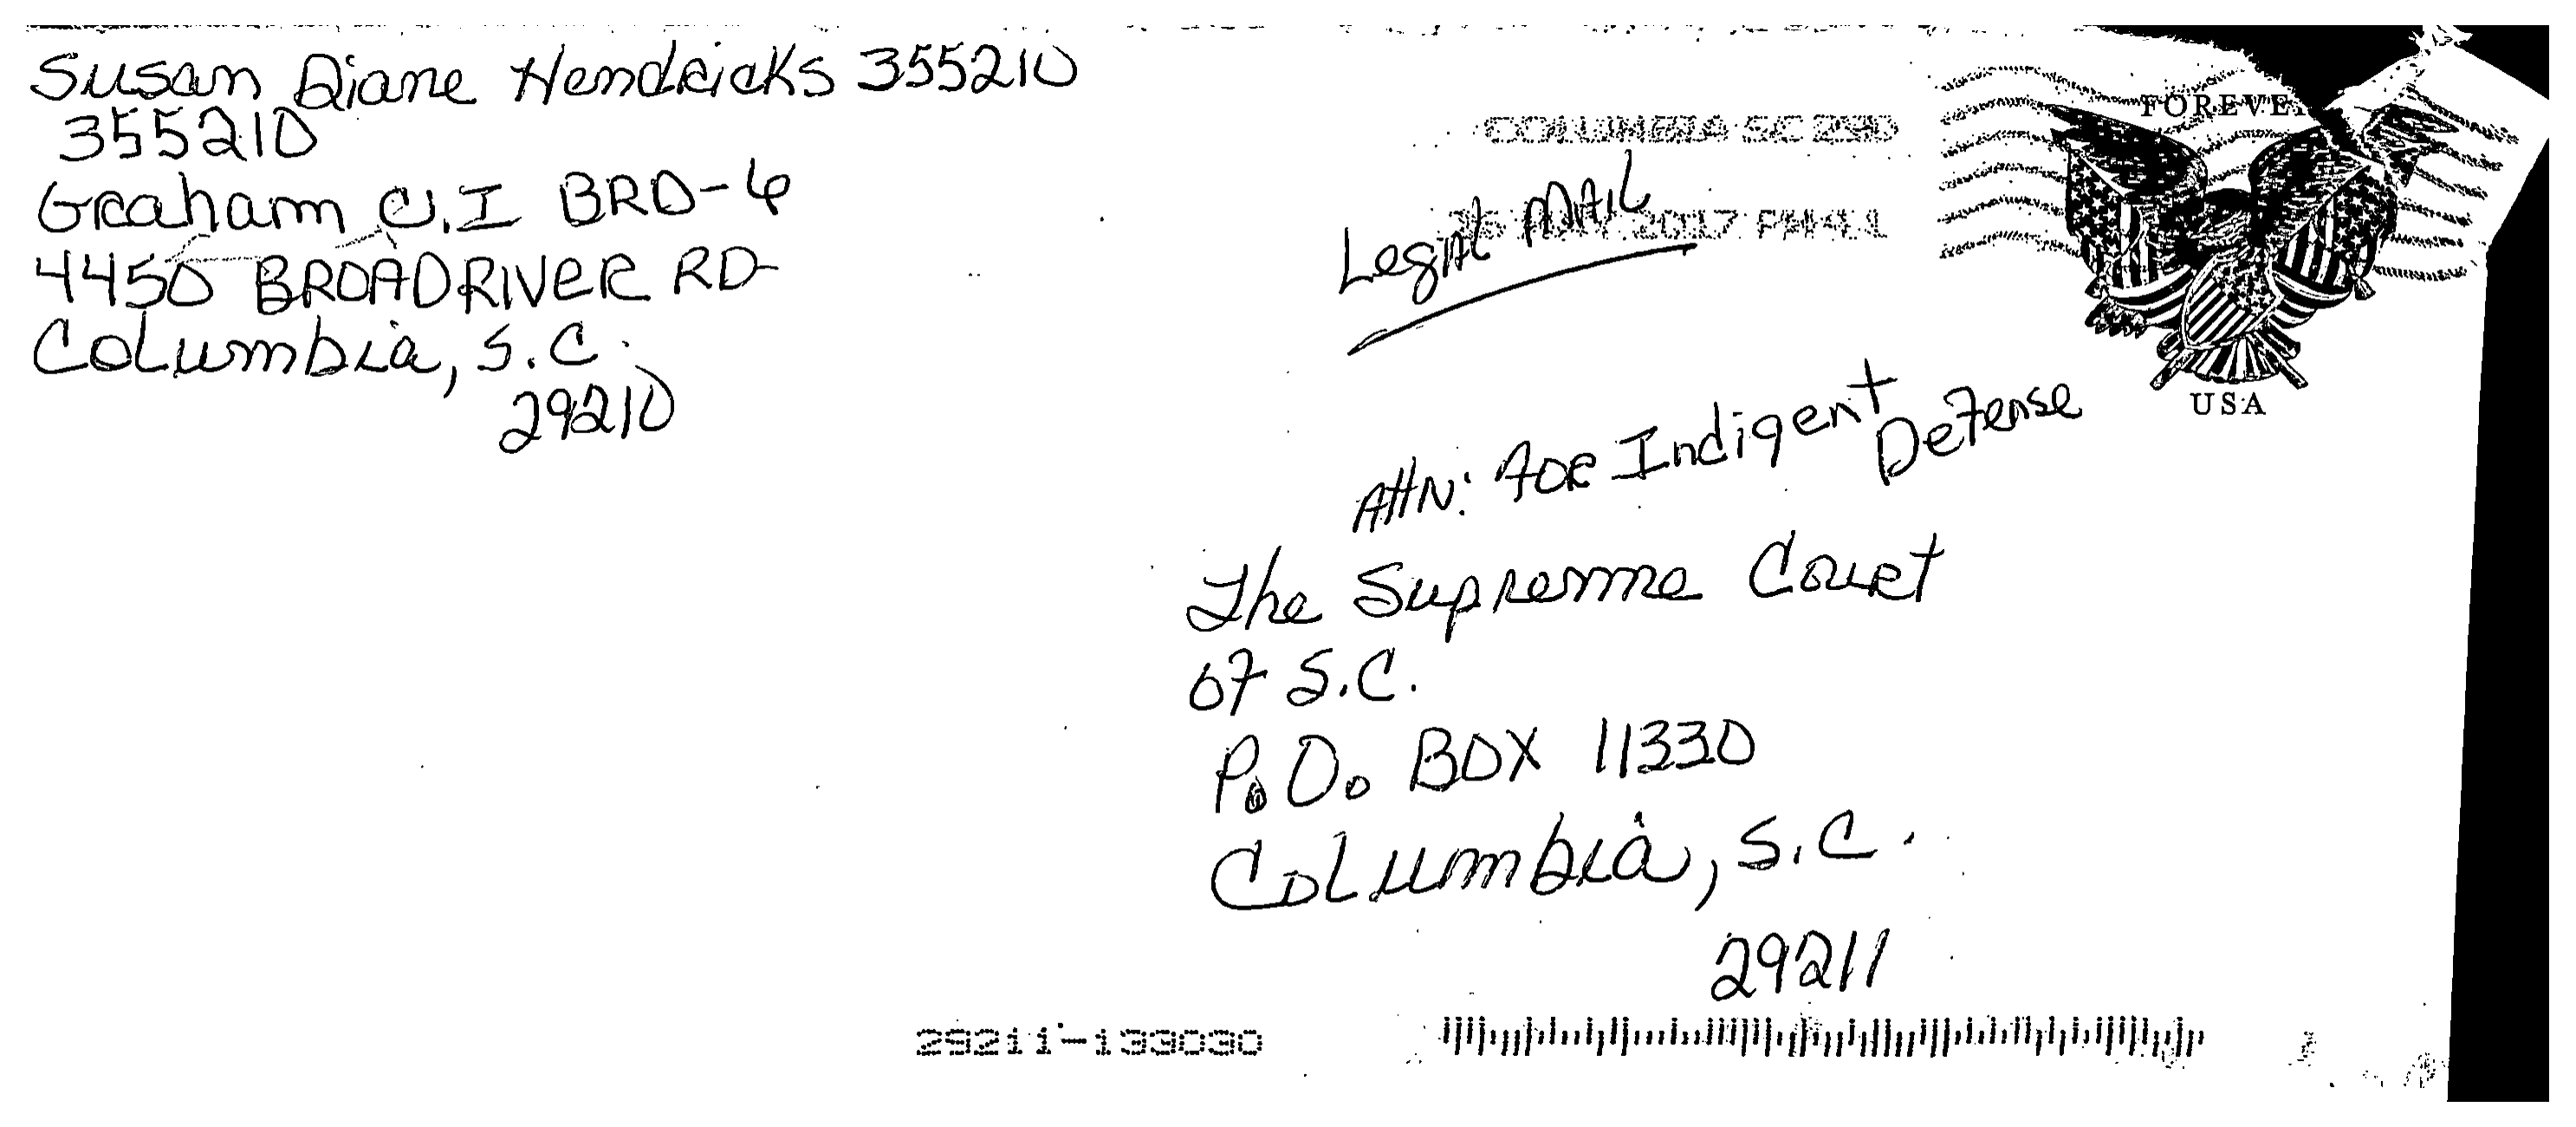 Susan Diane Hendricks 355210
355210
Graham C.I BRD-6
4450 BROADRIVER RD
Columbia, S.C.
29210
COLUMBIA SC 290
2017 PM 4 L
FOREVE
USA
Legal MAIL
Attn: FOR Indigent Defense
The Supreme Court
of S.C.
P.O. BOX 11330
Columbia, S.C.
29211
29211-133030